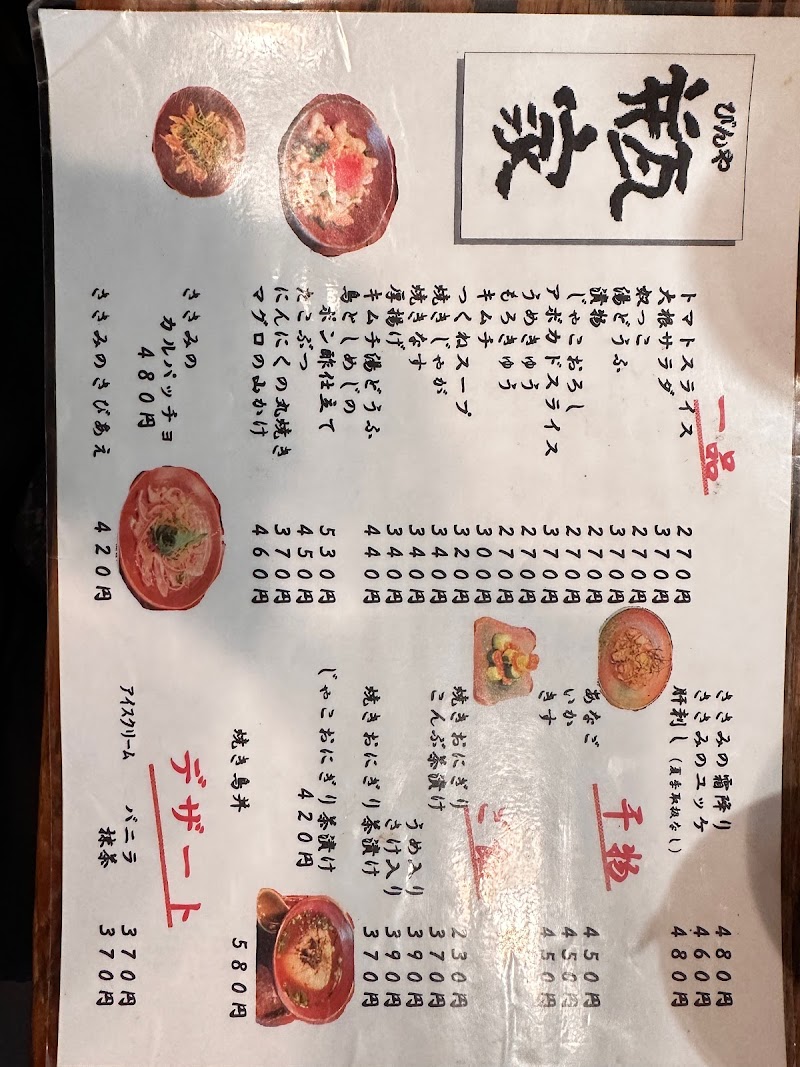 びんや
瓶家
一品
トマトスライス 270円
大根サラダ 370円
奴っこ 270円
湯どうふ 370円
漬物 270円
じゃこおろし 270円
アボカドスライス 370円
うめきゅう 270円
もろきゅう 270円
キムチ 300円
つくねスープ 320円
焼きじゃが 340円
焼きなす 340円
厚揚げ 340円
キムチ湯どうふ 440円
鳥としめじの
ポン酢仕立て 530円
たこぶつ 450円
にんにくの丸焼き 370円
マグロの山かけ 460円
ささみの
カルパッチョ
480円
ささみのさびあえ 420円
ささみの霜降り 480円
ささみのユッケ 460円
肝刺し(夏季取扱なし) 480円
干物
あなご 450円
いか 450円
きす 450円
ご飯
焼きおにぎり 230円
こんぶ茶漬け 370円
うめ入り 390円
さけ入り 390円
焼きおにぎり茶漬け 370円
じゃこおにぎり茶漬け
420円
焼き鳥丼 580円
デザート
アイスクリーム バニラ 370円
抹茶 370円